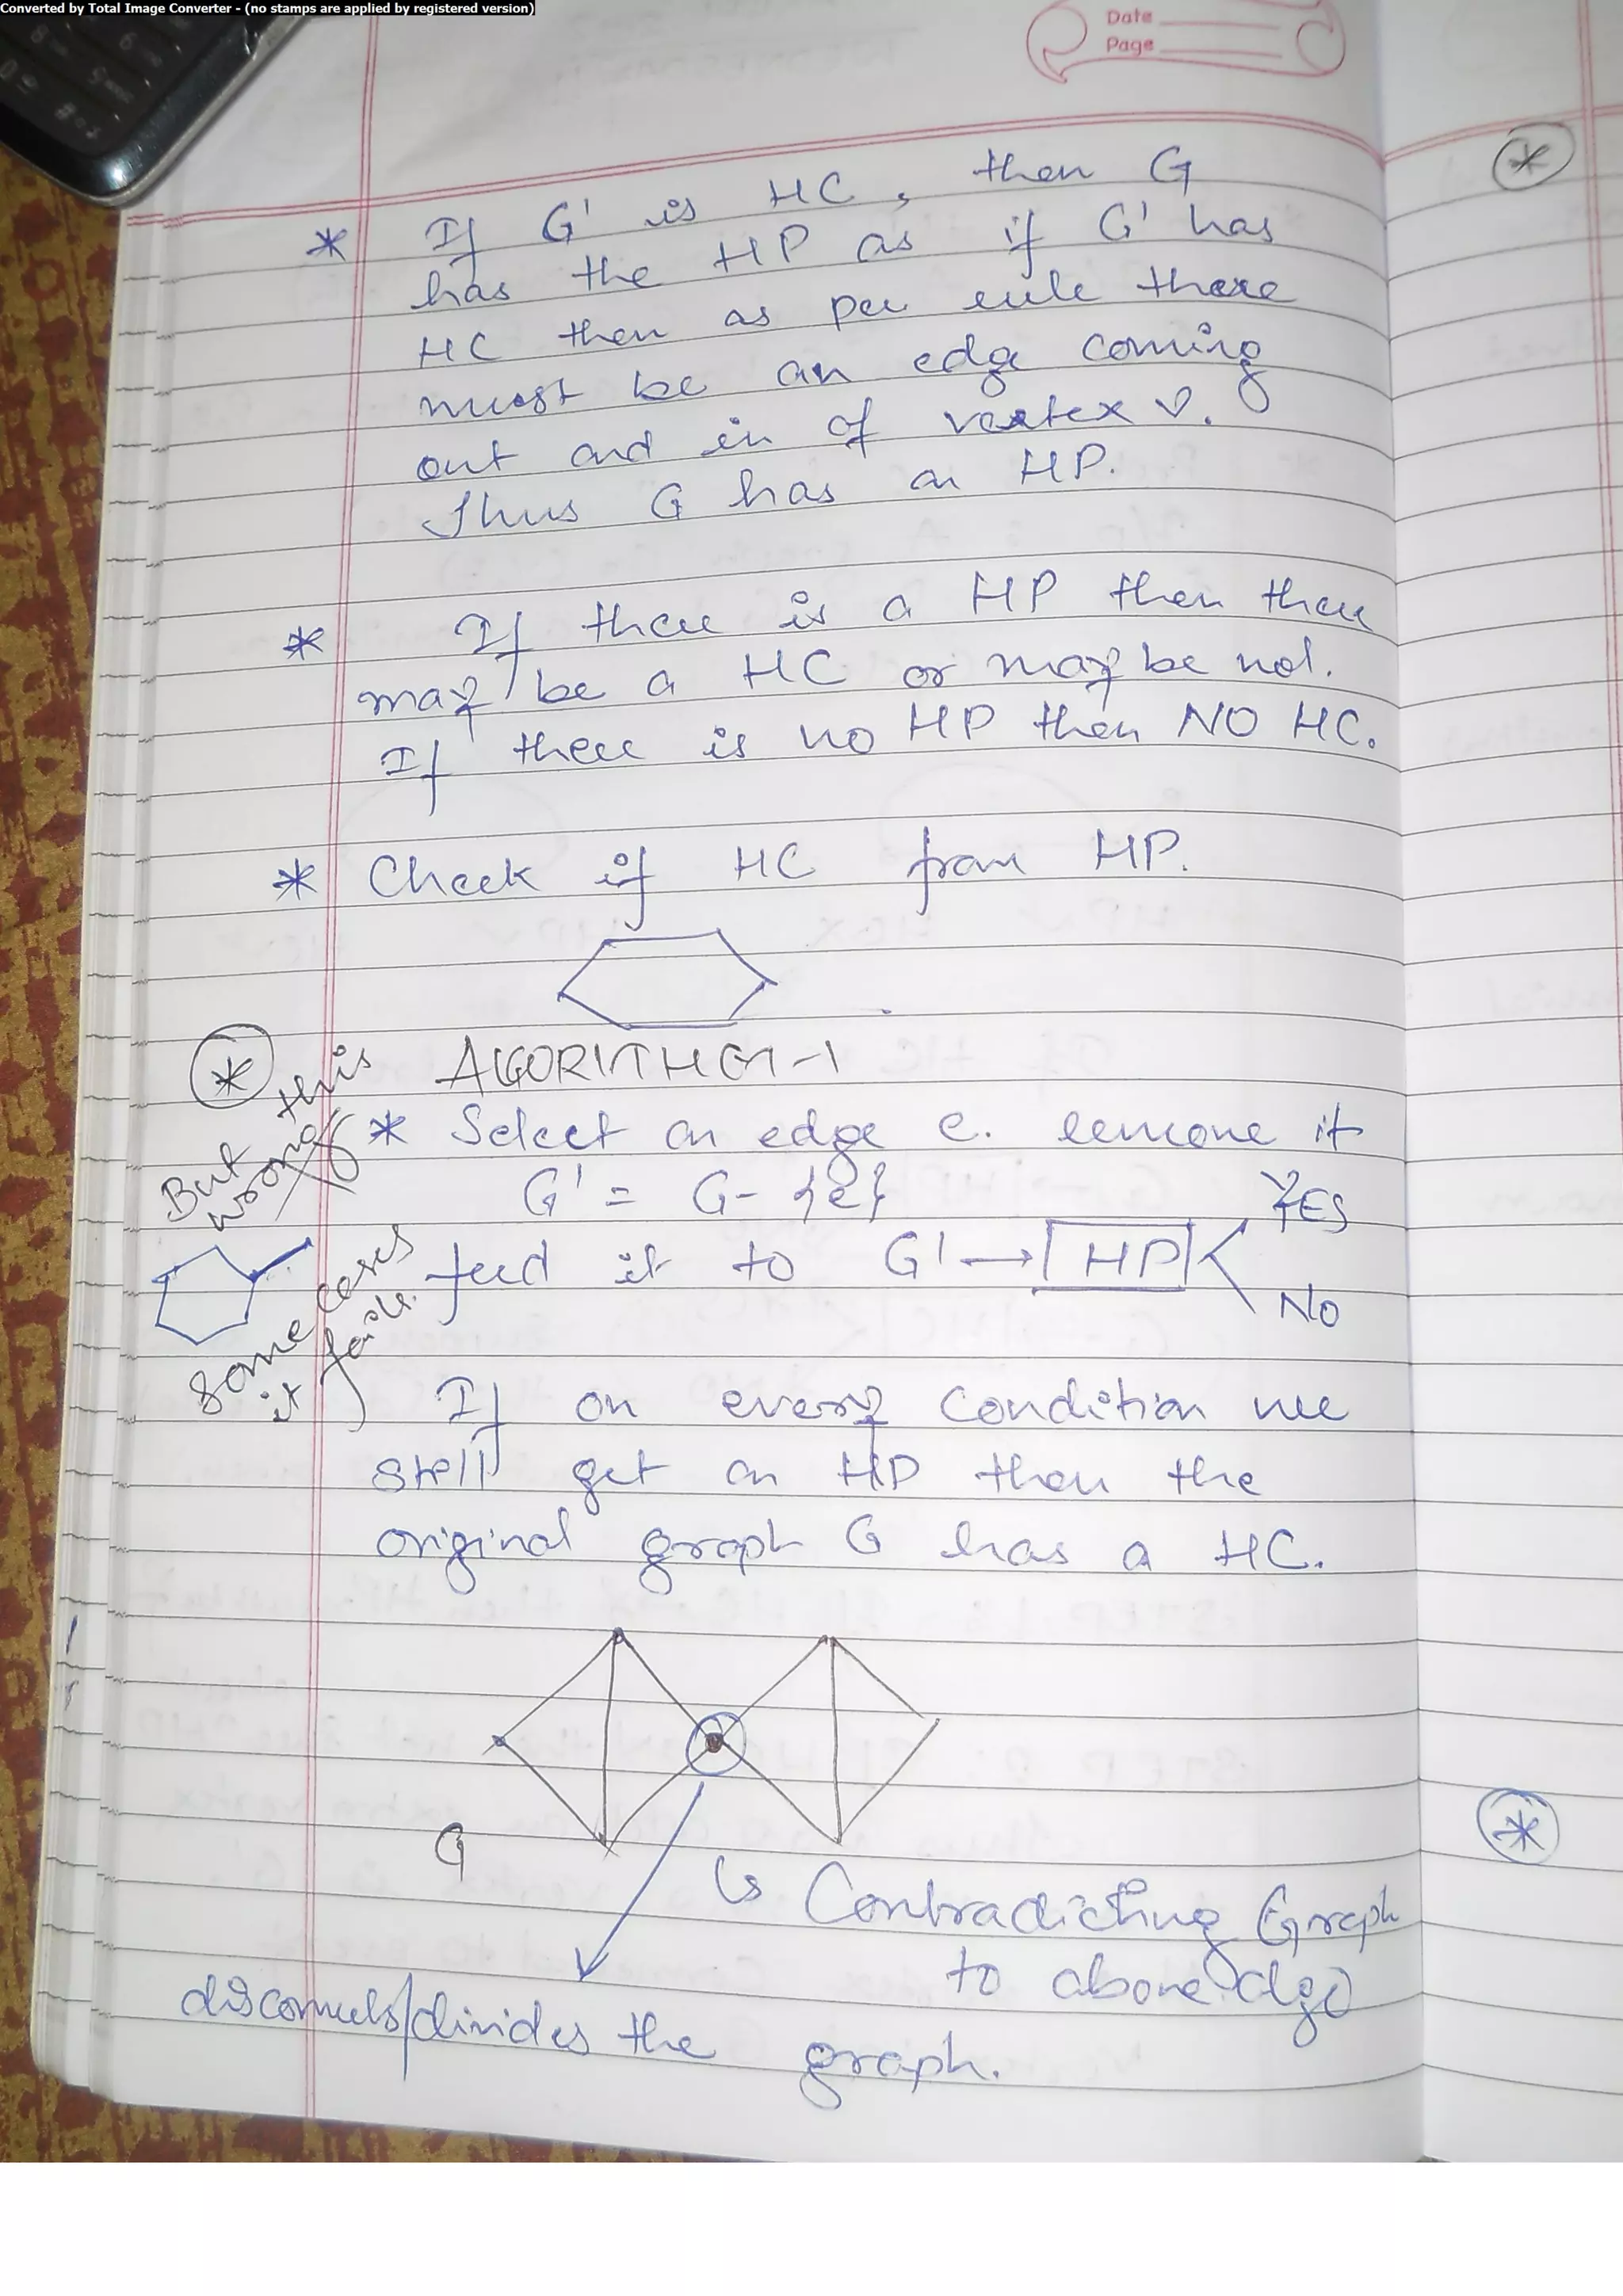 Converted by Total Image Converter - (no stamps are applied by registered version)
Date
Page
*
* If G' is HC, then G
has the HP as if G' has
HC then as per rule there
must be an edge coming
out and in of vertex v.
Thus G has an HP.
* If there is a HP then there
may be a HC or may be not.
If there is no HP then NO HC.
* Check if HC from HP.
* ALGORITHM-1
But this
wrong
* Select an edge e. remove it
G' = G- {e}
YES
feed it to G' → HP
NO
some cases
it fails.
If on every condition we
still get an HP then the
original graph G has a HC.
G
*
↳ Contradicting Graph
to above algo
disconnects/divides the graph.